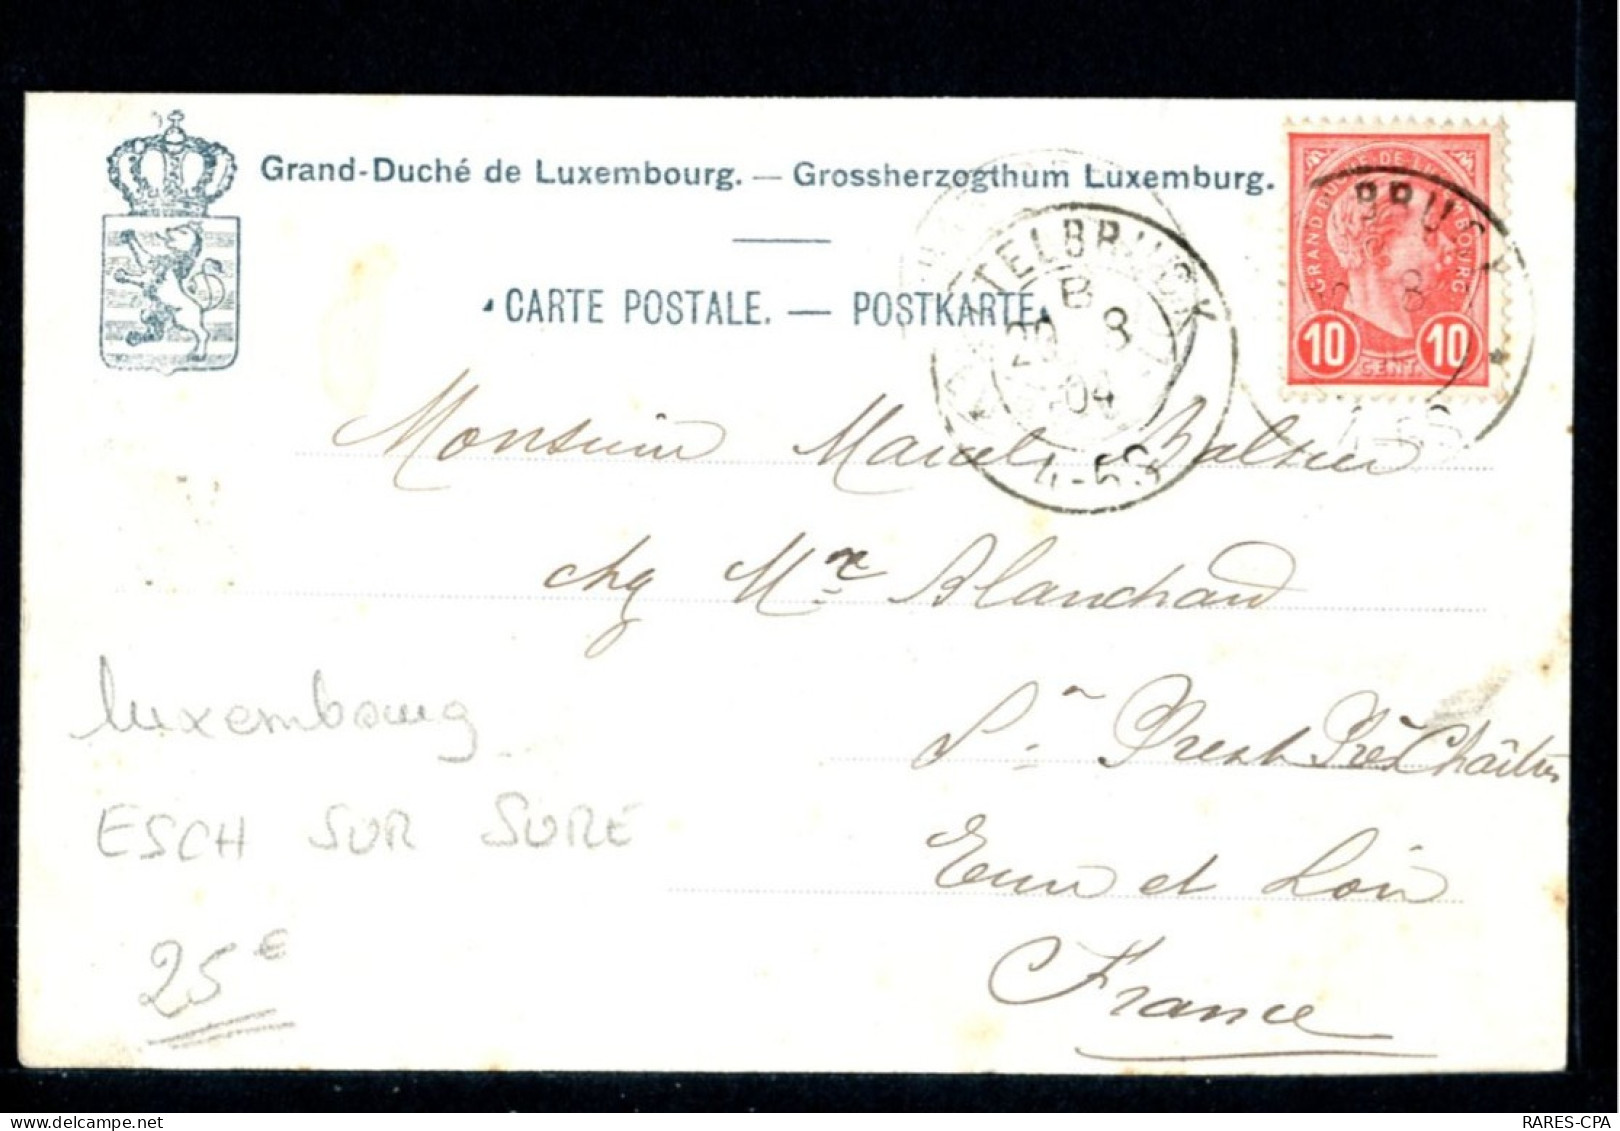 Grand-Duché de Luxembourg. — Grossherzogthum Luxemburg.
CARTE POSTALE. — POSTKARTE.
GRAND DUCHÉ DE LUXEMBOURG
10 CENT. 10
TELBRUCK
B
20 8
04
4-5S
BRUS
8
Monsieur Marcel
chez Mr Blanchard
St Prest Près Chartres
Eure et Loir
France
Luxembourg
ESCH SUR SURE
25€
RARES-CPA